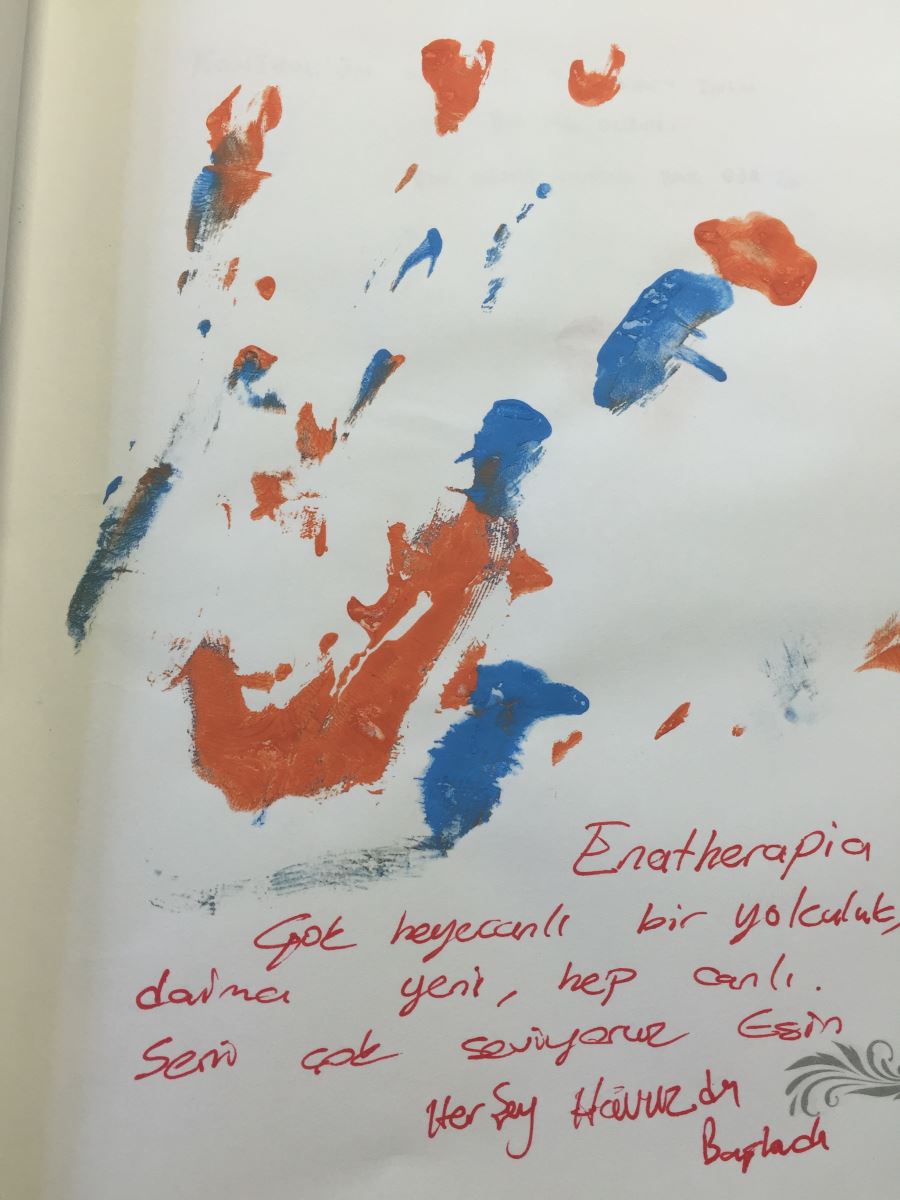 Enatherapia
Çok heyecanlı bir yolculuk,
daima yeni, hep canlı.
Seni çok seviyoruz Esin
Herşey Havuzda
Başladı